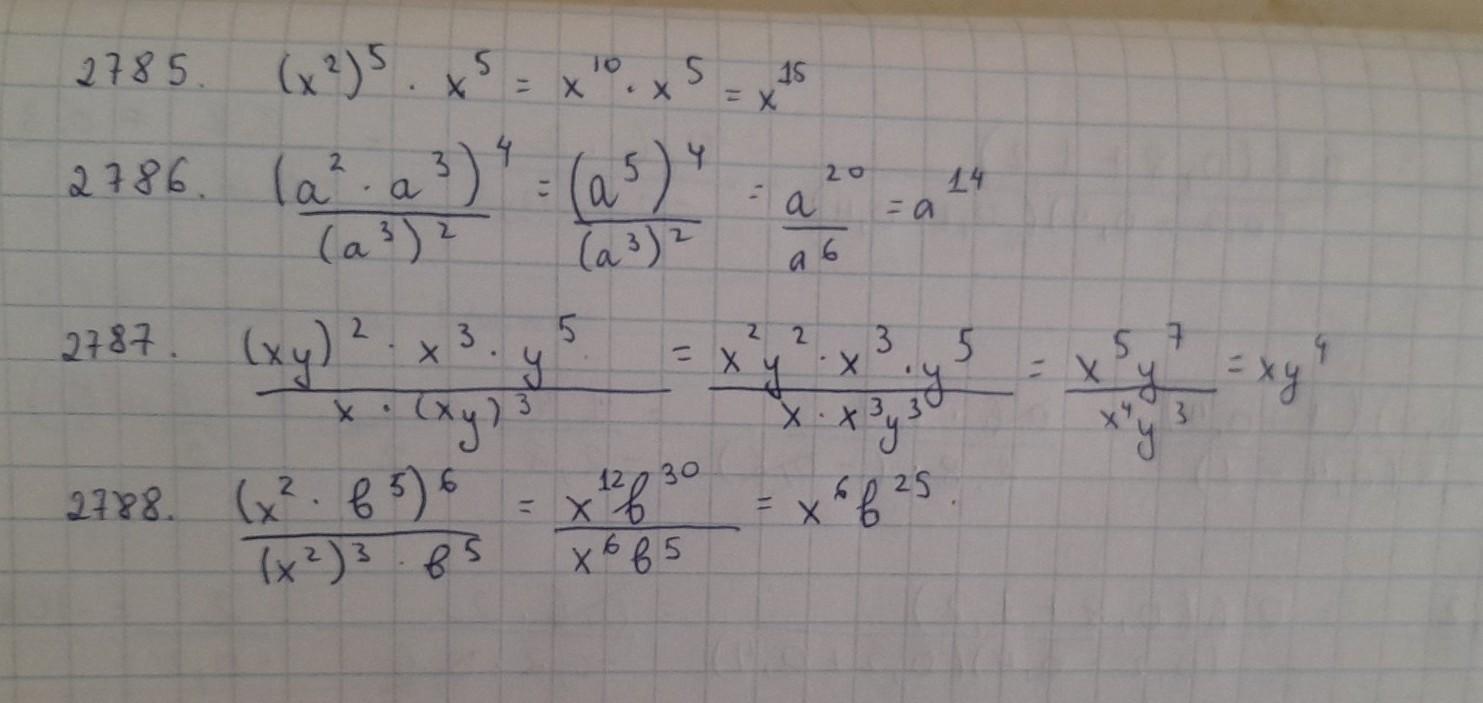 2785. (x²)⁵ · x⁵ = x¹⁰ · x⁵ = x¹⁵
2786. (a² · a³)⁴ / (a³)² = (a⁵)⁴ / (a³)² = a²⁰ / a⁶ = a¹⁴
2787. (xy)² · x³ · y⁵ / x · (xy)³ = x²y² · x³ · y⁵ / x · x³y³ = x⁵y⁷ / x⁴y³ = xy⁴
2788. (x² · в⁵)⁶ / (x²)³ · в⁵ = x¹²в³⁰ / x⁶в⁵ = x⁶в²⁵.